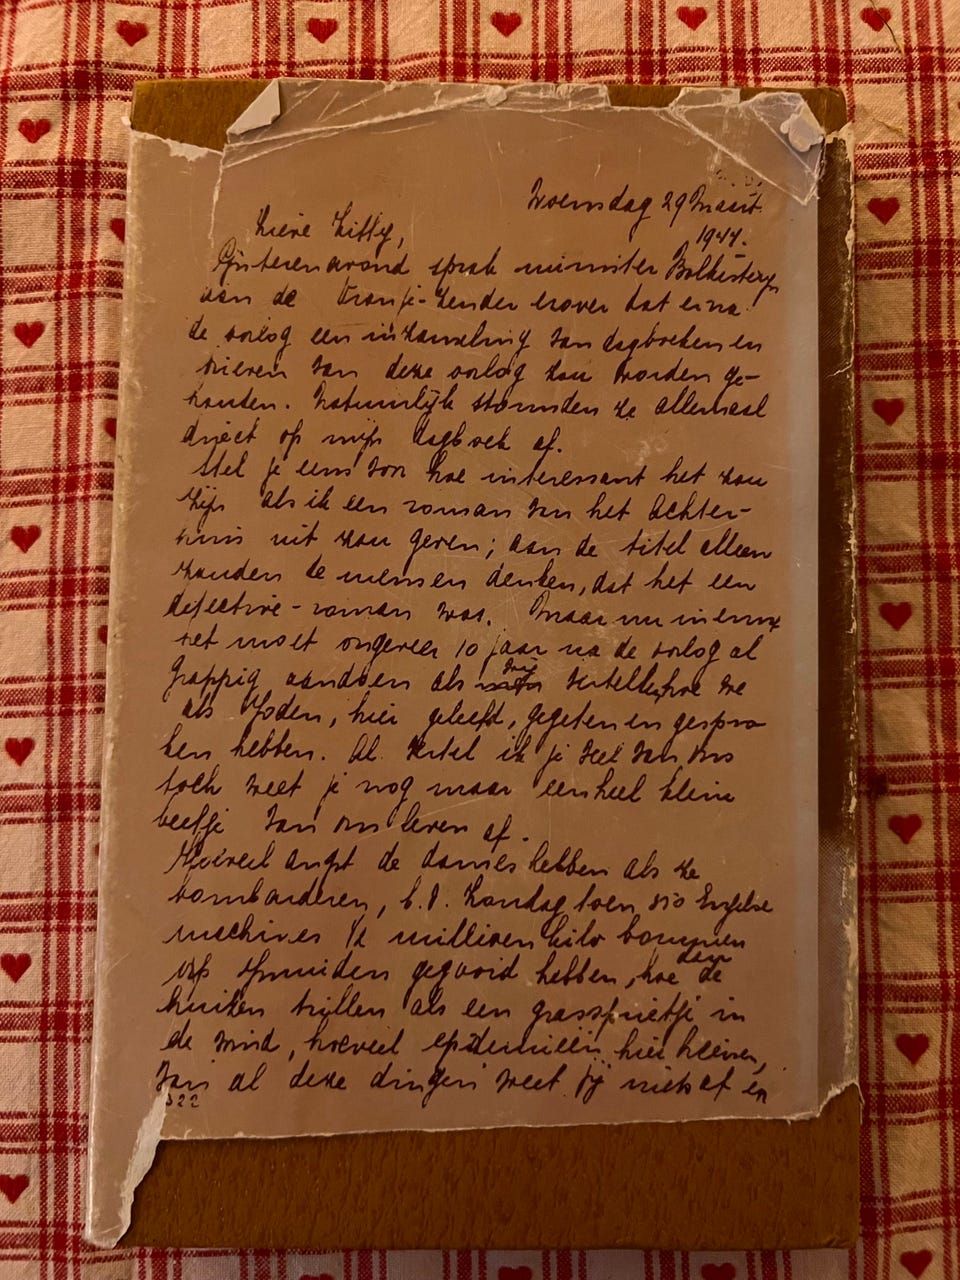 Woensdag 29 Maart
1944.
Lieve Kitty,
Gisterenavond sprak minister Bolkesteyn
aan de Oranje-zender erover dat er na
de oorlog een inzameling van dagboeken en
brieven van deze oorlog zou worden ge-
houden. Natuurlijk stormden ze allemaal
direct op mijn dagboek af.
Stel je eens voor hoe interessant het zou
zijn als ik een roman van het Achter-
huis uit zou geven; aan de titel alleen
zouden de mensen denken, dat het een
detective-roman was. Maar nu in ernst
het moet ongeveer 10 jaar na de oorlog al
grappig aandoen als wij vertellen hoe we
als Joden, hier geleefd, gegeten en gespro-
ken hebben. Al vertel ik je veel van ons
toch weet je nog maar een heel klein
beetje van ons leven af.
Hoeveel angst de dames hebben als ze
bombarderen, b.v. Zondag toen 350 Engelse
machines 1/2 millioen kilo bommen
op Ijmuiden gegooid hebben, hoe dan de
huizen trillen als een grassprietje in
de wind, hoeveel epidemieën hier heersen,
van al deze dingen weet jij niets af en
322